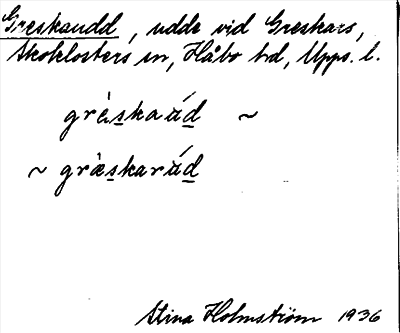 Greskaudd, udde vid Greskars,
Skoklosters sn, Håbo hd, Upps. l.
grè̀skaúd ~
~ grèskarúd
Stina Holmström 1936